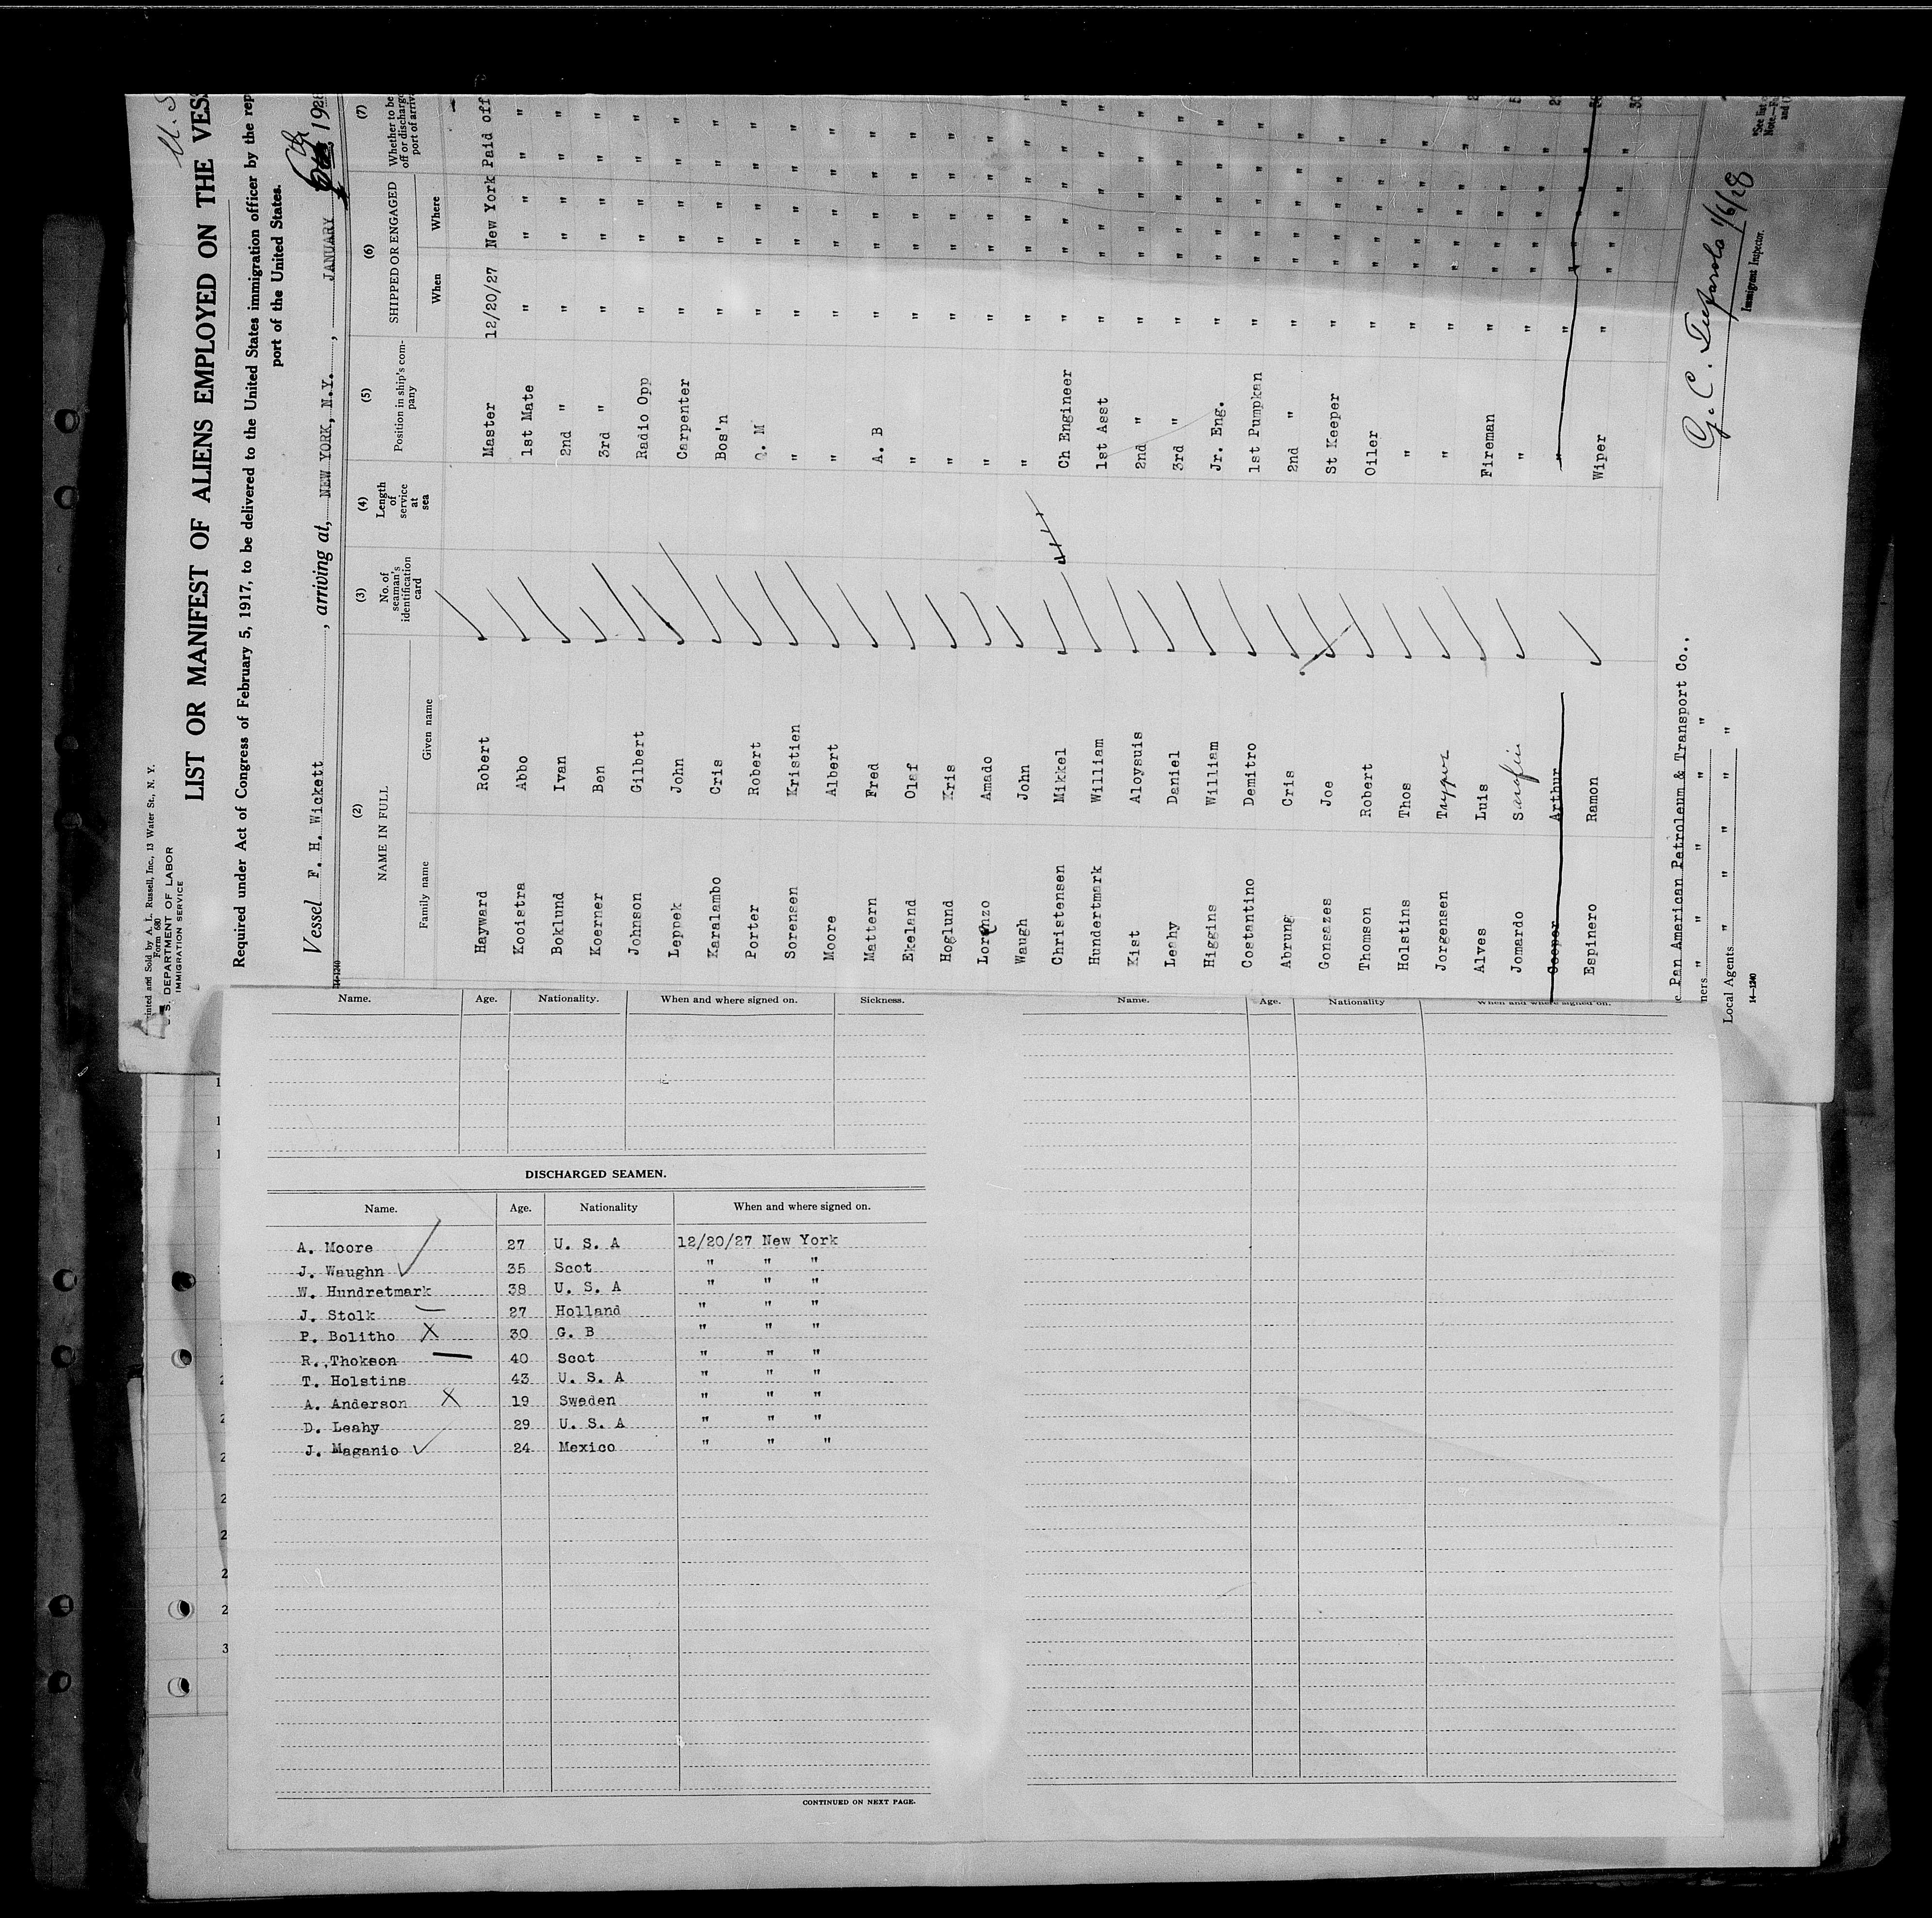 Printed and Sold by A. L. Russell, Inc., 13 Water St., N. Y.
Form 680
U. S. DEPARTMENT OF LABOR
IMMIGRATION SERVICE
U. S
LIST OR MANIFEST OF ALIENS EMPLOYED ON THE VESS
Required under Act of Congress of February 5, 1917, to be delivered to the United States immigration officer by the rep
port of the United States.
Vessel F. H. Wickett, arriving at, NEW YORK, N.Y., JANUARY 6th 1928
14-1240
(2) (3) (4) (5) (6) (7)
NAME IN FULL No. of seaman's identification card Length of service at sea Position in ship's company SHIPPED OR ENGAGED Whether to be off or discharge port of arriva
Family name Given name When Where
Hayward Robert Master 12/20/27 New York Paid off
Kooistra Abbo 1st Mate " " " " "
Boklund Ivan 2nd " " " " " "
Koerner Ben 3rd " " " " " "
Johnson Gilbert Radio Opp " " " " "
Leppek John Carpenter " " " " "
Karalambo Cris Bos'n " " " " "
Porter Robert Q. M " " " " "
Sorensen Kristien " " " " " "
Moore Albert " " " " " "
Mattern Fred A. B " " " " "
Ekeland Olaf " " " " " "
Hoglund Kris " " " " " "
Lorenzo Amado " " " " " "
Waugh John " " " " " "
Christensen Mikkel Ch Engineer " " " " "
Hundertmark William 1st Asst " " " " "
Kist Aloysuis 2nd " " " " " "
Leahy Daniel 3rd " " " " " "
Higgins William Jr. Eng. " " " " "
Costantino Demitro 1st Pumpkan " " " " "
Abrung Cris 2nd " " " " " "
Gonsazes Joe St Keeper " " " " "
Thomson Robert Oiler " " " " "
Holstins Thos " " " " " "
Jorgensen Trygve " " " " " "
Alves Luis Fireman " " " " "
Jomardo Serafin " " " " "
Cooper Arthur " " " " "
Espinero Ramon Wiper " " " "
Pan American Petroleum & Transport Co..
ners " " " " "
Local Agents " " " " "
14-1240
1/6/28
Immigrant Inspector.
*See list
Name. Age. Nationality. When and where signed on. Sickness.
Name. Age. Nationality When and where signed on.
DISCHARGED SEAMEN.
Name. Age. Nationality When and where signed on.
A. Moore 27 U. S. A 12/20/27 New York
J. Waughn 35 Scot " " "
W. Hundretmark 38 U. S. A " " "
J. Stolk 27 Holland " " "
P. Bolitho X 30 G. B " " "
R. Thokson 40 Scot " " "
T. Holstins 43 U. S. A " " "
A. Anderson X 19 Sweden " " "
D. Leahy 29 U. S. A " " "
J. Maganio 24 Mexico " " "
CONTINUED ON NEXT PAGE.